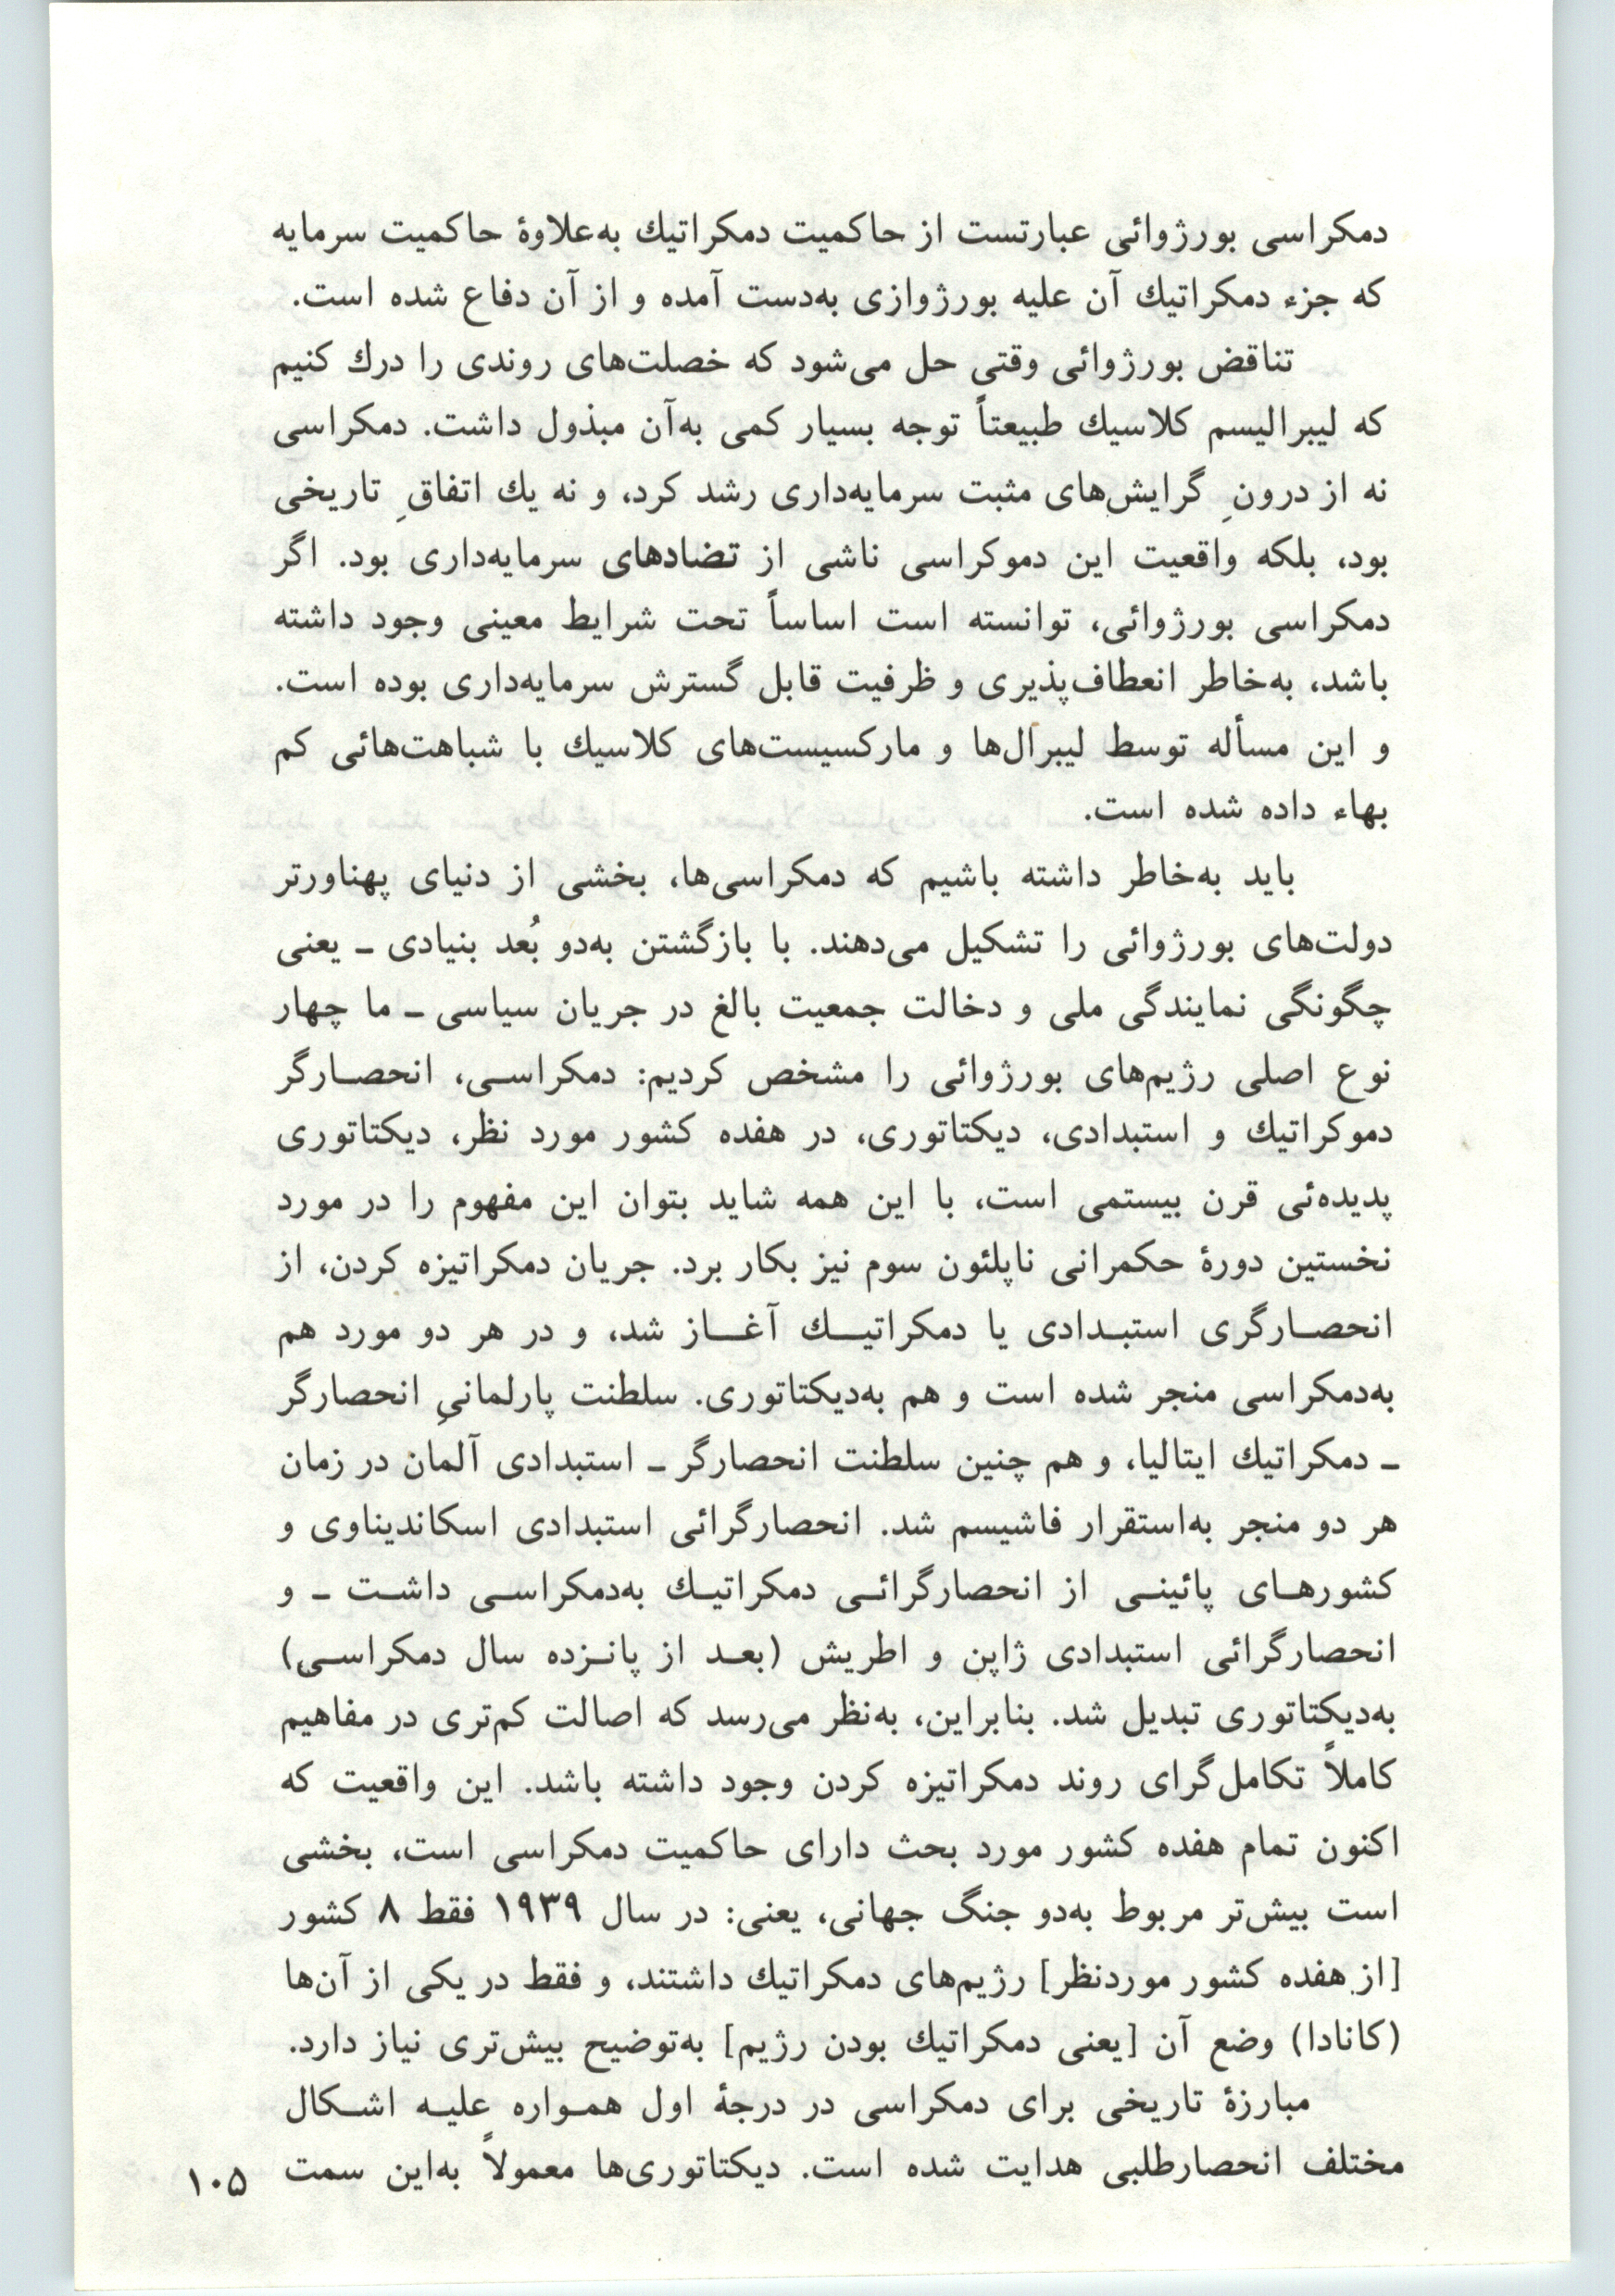 دمکراسی بورژوائی عبارتست از حاکمیت دمکراتیك به‌علاوهٔ حاکمیت سرمایه
که جزء دمکراتیك آن علیه بورژوازی به‌دست آمده و از آن دفاع شده است.
تناقض بورژوائی وقتی حل می‌شود که خصلت‌های روندی را درك کنیم
که لیبرالیسم کلاسیك طبیعتاً توجه بسیار کمی به‌آن مبذول داشت. دمکراسی
نه از درونِ گرایش‌های مثبت سرمایه‌داری رشد کرد، و نه یك اتفاقِ تاریخی
بود، بلکه واقعیت این دموکراسی ناشی از تضادهای سرمایه‌داری بود. اگر
دمکراسی بورژوائی، توانسته است اساساً تحت شرایط معینی وجود داشته
باشد، به‌خاطر انعطاف‌پذیری و ظرفیت قابل گسترش سرمایه‌داری بوده است.
و این مسأله توسط لیبرال‌ها و مارکسیست‌های کلاسیك با شباهت‌هائی کم
بهاء داده شده است.
باید به‌خاطر داشته باشیم که دمکراسی‌ها، بخشی از دنیای پهناورتر
دولت‌های بورژوائی را تشکیل می‌دهند. با بازگشتن به‌دو بُعد بنیادی ـ یعنی
چگونگی نمایندگی ملی و دخالت جمعیت بالغ در جریان سیاسی ـ ما چهار
نوع اصلی رژیم‌های بورژوائی را مشخص کردیم: دمکراسـی، انحصـارگر
دموکراتیك و استبدادی، دیکتاتوری، در هفده کشور مورد نظر، دیکتاتوری
پدیده‌ئی قرن بیستمی است، با این همه شاید بتوان این مفهوم را در مورد
نخستین دورهٔ حکمرانی ناپلئون سوم نیز بکار برد. جریان دمکراتیزه کردن، از
انحصـارگری استبـدادی یا دمکراتیـك آغـاز شد، و در هر دو مورد هم
به‌دمکراسی منجر شده است و هم به‌دیکتاتوری. سلطنت پارلمانیِ انحصارگر
ـ دمکراتیك ایتالیا، و هم چنین سلطنت انحصارگر ـ استبدادی آلمان در زمان
هر دو منجر به‌استقرار فاشیسم شد. انحصارگرائی استبدادی اسکاندیناوی و
کشورهـای پائینـی از انحصارگرائـی دمکراتیـك به‌دمکراسـی داشـت ـ و
انحصارگرائی استبدادی ژاپن و اطریش (بعـد از پانـزده سال دمکراسـی)
به‌دیکتاتوری تبدیل شد. بنابراین، به‌نظر می‌رسد که اصالت کم‌تری در مفاهیم
کاملاً تکامل‌گرای روند دمکراتیزه کردن وجود داشته باشد. این واقعیت که
اکنون تمام هفده کشور مورد بحث دارای حاکمیت دمکراسی است، بخشی
است بیش‌تر مربوط به‌دو جنگ جهانی، یعنی: در سال ۱۹۳۹ فقط ۸ کشور
[از هفده کشور موردنظر] رژیم‌های دمکراتیك داشتند، و فقط در یکی از آن‌ها
(کانادا) وضع آن [یعنی دمکراتیك بودن رژیم] به‌توضیح بیش‌تری نیاز دارد.
مبارزهٔ تاریخی برای دمکراسی در درجهٔ اول همـواره علیـه اشـکال
مختلف انحصارطلبی هدایت شده است. دیکتاتوری‌ها معمولاً به‌این سمت
۱۰۵